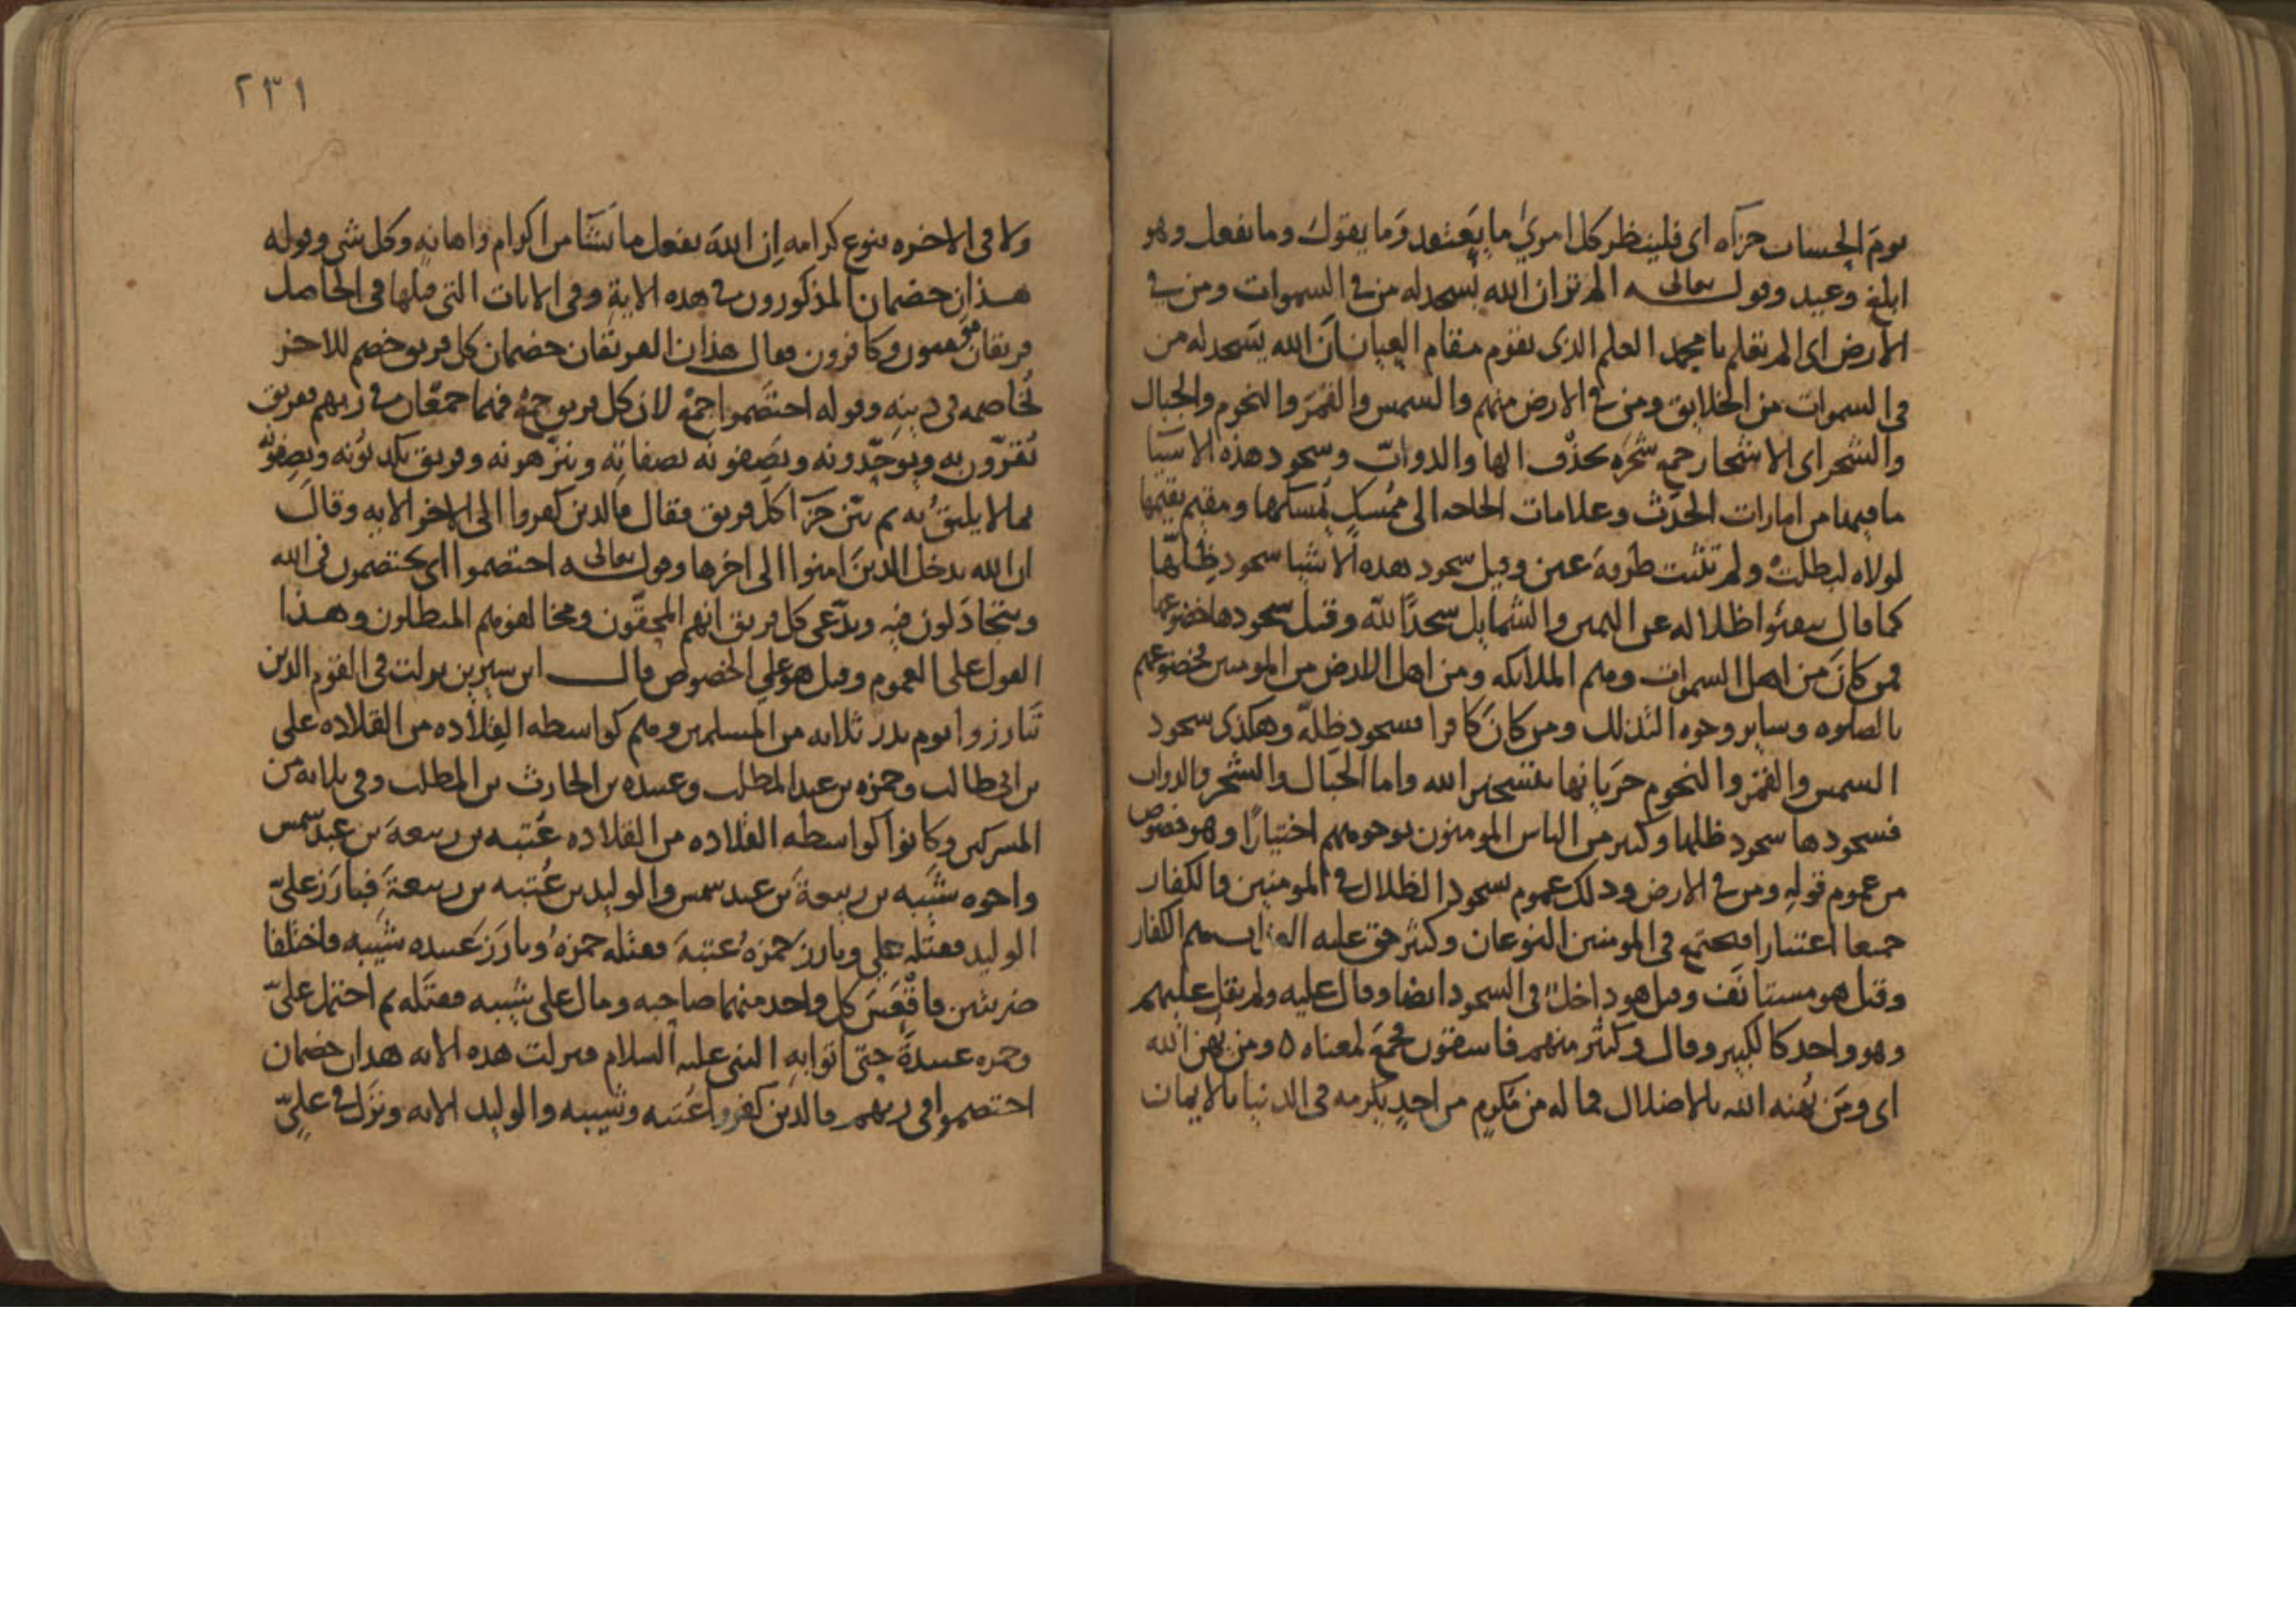 يوم الحساب جزآه اى فلينظر كل امرئ ما يعتقد وما يقول وما يفعل وهو
ابلغ وعيد وقوله تعالى الم تر ان الله يسجد له من في السموات ومن في
الارض اى الم تعلم يا محمد العلم الذى يقوم مقام العيان ان الله يسجد له من
فى السموات من الخلايق ومن في الارض منهم والشمس والقمر والنجوم والجبال
والشجر اى الاشجار جمع شجره بحذف الها والدوابّ وسجود هذه الاشيا
ما فيها من امارات الحدث وعلامات الحاجه الى ممسك يمسكها ومقيم يقيمها
لولاه لبطلت ولم تثبت طرفة عين وقيل سجود هذه الاشيا سجود ظلالها
كما قال يتفيئوا ظلاله عن اليمين والشمايل سجدًا لله وقيل سجودها خضوعها
فمن كان من اهل السموات وهم الملايكه ومن اهل الارض من المومنين فخضوعهم
بالصلوه وساير وجوه التذلل ومن كان كافرا فسجود ظله وهكذى سجود
الشمس والقمر والنجوم جريانها بتسخير الله واما الجبال والشجر والدواب
فسجودها سجود ظلها وكثير من الناس المومنون بوجوههم اختيارًا وهو خصوص
من عموم قوله ومن في الارض وذلك عموم سجود الظلال في المومنين والكفار
جميعا اعتبارا فيجتمع فى المومنين النوعان وكثير حق عليه العذاب هم الكفار
وقيل هو مستانف وقيل هو داخل فى السجود ايضا وقال عليه ولم يقل عليهم
وهو واحد كالكبير وقال وكثير منهم فاسقون فجمع لمعناه ه ومن يهن الله
اى ومن يهنه الله بالاضلال فما له من مكرم من احد يكرمه فى الدنيا بالايمان
٢٣١
ولا فى الاخره بنوع كرامه ان الله يفعل ما يشآ من اكرام واهانه وكل شى وقوله
هذان خصمان المذكورون في هذه الاية وفى الايات التى قبلها فى الحاصل
فريقان مومنون وكافرون فقال هذان الفريقان خصمان كل فريق خصم للاخر
يخاصمه فى دينه وقوله اختصموا جمع لان كل فريق جمع فهما جمعان في ربهم ففريق
يقرّون به ويوحّدونه ويصفونه بصفاته وينزهونه وفريق يكذبونه ويصفونه
بما لا يليق به ثم بيّن جزآ كل فريق فقال فالذين كفروا الى اخر الايه وقال
ان الله يدخل الذين امنوا الى اخرها وقوله تعالى اختصموا اى يختصمون فى الله
ويتجادلون فيه ويدّعى كل فريق انهم المحقّون ومخالفوهم المبطلون وهذا
القول على العموم وقيل هو على الخصوص قال ابن سيرين نزلت فى القوم الذين
تبارزوا يوم بدر ثلاثه من المسلمين وهم كواسطه القلاده من القلاده على
بن ابى طالب وحمزه بن عبد المطلب وعبيده بن الحارث بن المطلب وفى ثلاثه من
المشركين وكانوا كواسطه القلاده من القلاده عُتبه بن ربيعة بن عبد شمس
واخوه شيبه بن ربيعة بن عبد شمس والوليد بن عُتبه بن ربيعة فبارز علىّ
الوليد فقتله على وبارز حمزه عتبة فقتله حمزه وبارز عبيده شيبه فاختلفا
ضربتين فاقعس كل واحد منهما صاحبه ومال على شيبه فقتله ثم احتمل علىّ
وحمزه عبيدة حتى اتوا به النبى عليه السلام فنزلت هذه الايه هذان خصمان
اختصموا فى ربهم فالذين كفروا عُتبه وشيبه والوليد الايه ونزل في علىٍّ